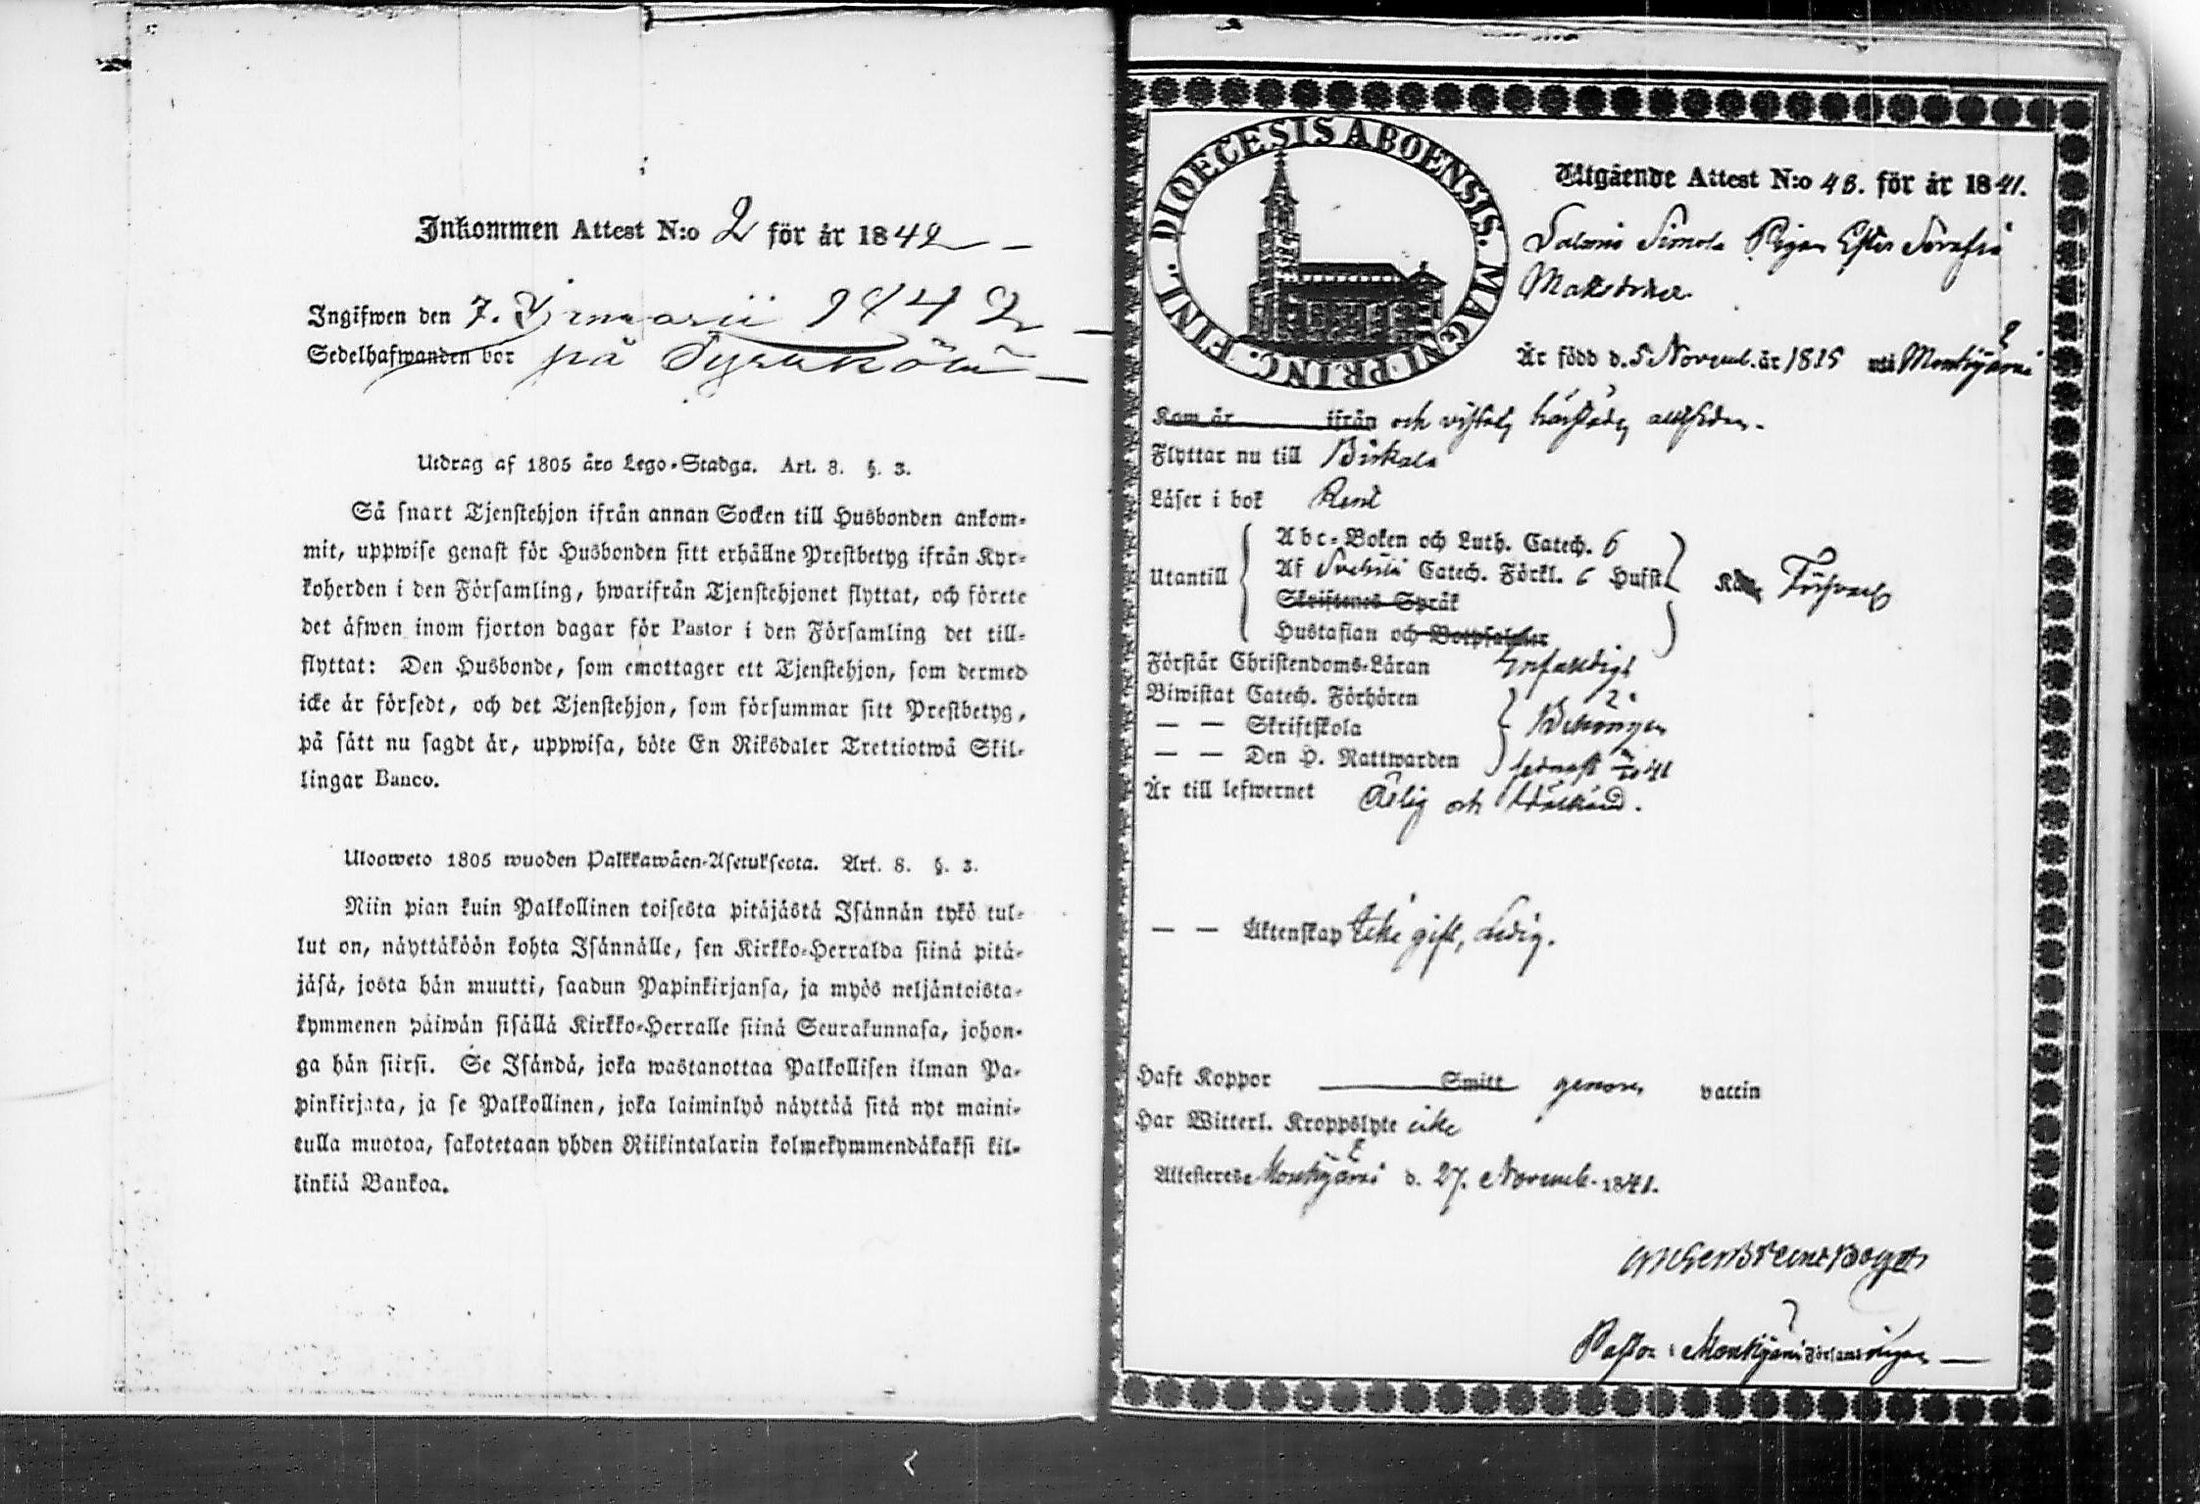 Inkommen Attest N:o 2 för år 1842
Ingifwen den 7. Januarii 1842
Sedelhafwanden bor på
Utdrag af 1805 års Lego-Stadga. Art. 8. §. 3.
Så snart Tjenstehjon ifrån annan Socken till Husbonden ankom-
mit, uppwise genast för Husbonden sitt erhållne Prestbetyg ifrån Kyr-
koherden i den Församling, hwarifrån Tjenstehjonet flyttat, och förete
det åfwen inom fjorton dagar för Pastor i den Församling det till-
flyttat: Den Husbonde, som emottager ett Tjenstehjon, som dermed
icke är försedt, och det Tjenstehjon, som försummar sitt Prestbetyg,
på sått nu sagdt är, uppwisa, böte En Riksdaler Trettiotwå Skil-
lingar Banco.
Ulosweto 1805 wuoden Palkkawäen-Asetuksesta. Art. 8. §. 3.
Niin pian kuin Palkollinen toisesta pitäjästä Isännän tykö tul-
lut on, näyttäköön kohta Isännälle, sen Kirkko-Herralda siinä pitä-
jäsä, josta hän muutti, saadun Papinkirjansa, ja myös neljäntoista-
kymmenen päiwän sisällä Kirkko-Herralle siinä Seurakunnasa, johon-
ga hän siirsi. Se Isändä, joka wastanottaa Palkollisen ilman Pa-
pinkirjata, ja se Palkollinen, joka laiminlyö näyttää sitä nyt maini-
tulla muotoa, sakotetaan yhden Riikintalarin kolmekymmendäkaksi kil-
linkiä Bankoa.
DIOECESIS ABOENSIS. MAGNI PRINC. FINL.
Utgående Attest N:o 48. för år 1841.
Simola Pigan Ester Serafia
År född d. 5 Novemb. år 1815 uti Mouhijärvi
Kom år ifrån och vistats härstädes alltsedan.
Flyttar nu till Birkala
Läser i bok Rent
Utantill
Abc-Boken och Luth. Catech. 6
Af Svebilii Catech. Förkl. 6 Hust.
Skriftenes Språk
Hustaflan och Botpsalmer
Försvarl.
Förstår Christendoms-Läran
Biwistat Catech. Förhören
— — Skriftskola
— — Den H. Nattwarden
Behörigen
senast 41
Är till lefwernet Ärlig och Wälkänd.
— — Äktenskap Icke gift, Ledig.
Haft Koppor Smitt genom vaccin
Har Witterl. Kroppslyte icke
Attesteras Mouhijärvi d. 27. Novemb. 1841.
Pastor i Mouhijärvi Församlingen